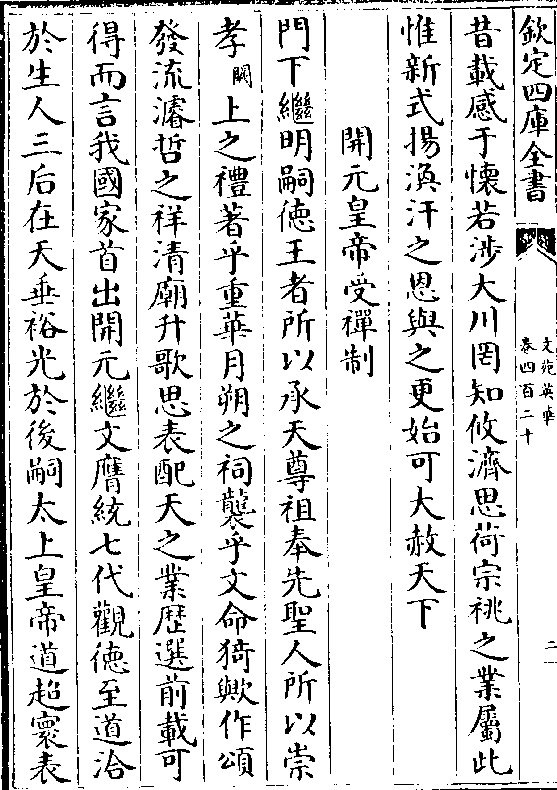 欽定四庫全書
文苑英華
卷四百二十
二
昔載感于懷若涉大川罔知攸濟思荷宗祧之業屬此
惟新式揚渙汗之恩與之更始可大赦天下
開元皇帝受禪制
門下繼明嗣德王者所以承天尊祖奉先聖人所以崇
孝闕上之禮著乎重華月朔之祠襲乎文命猗歟作頌
發流濬哲之祥清廟升歌思表配天之業歴選前載可
得而言我國家首出開元繼文膺統七代觀德至道洽
於生人三后在天垂裕光於後嗣太上皇帝道超寰表